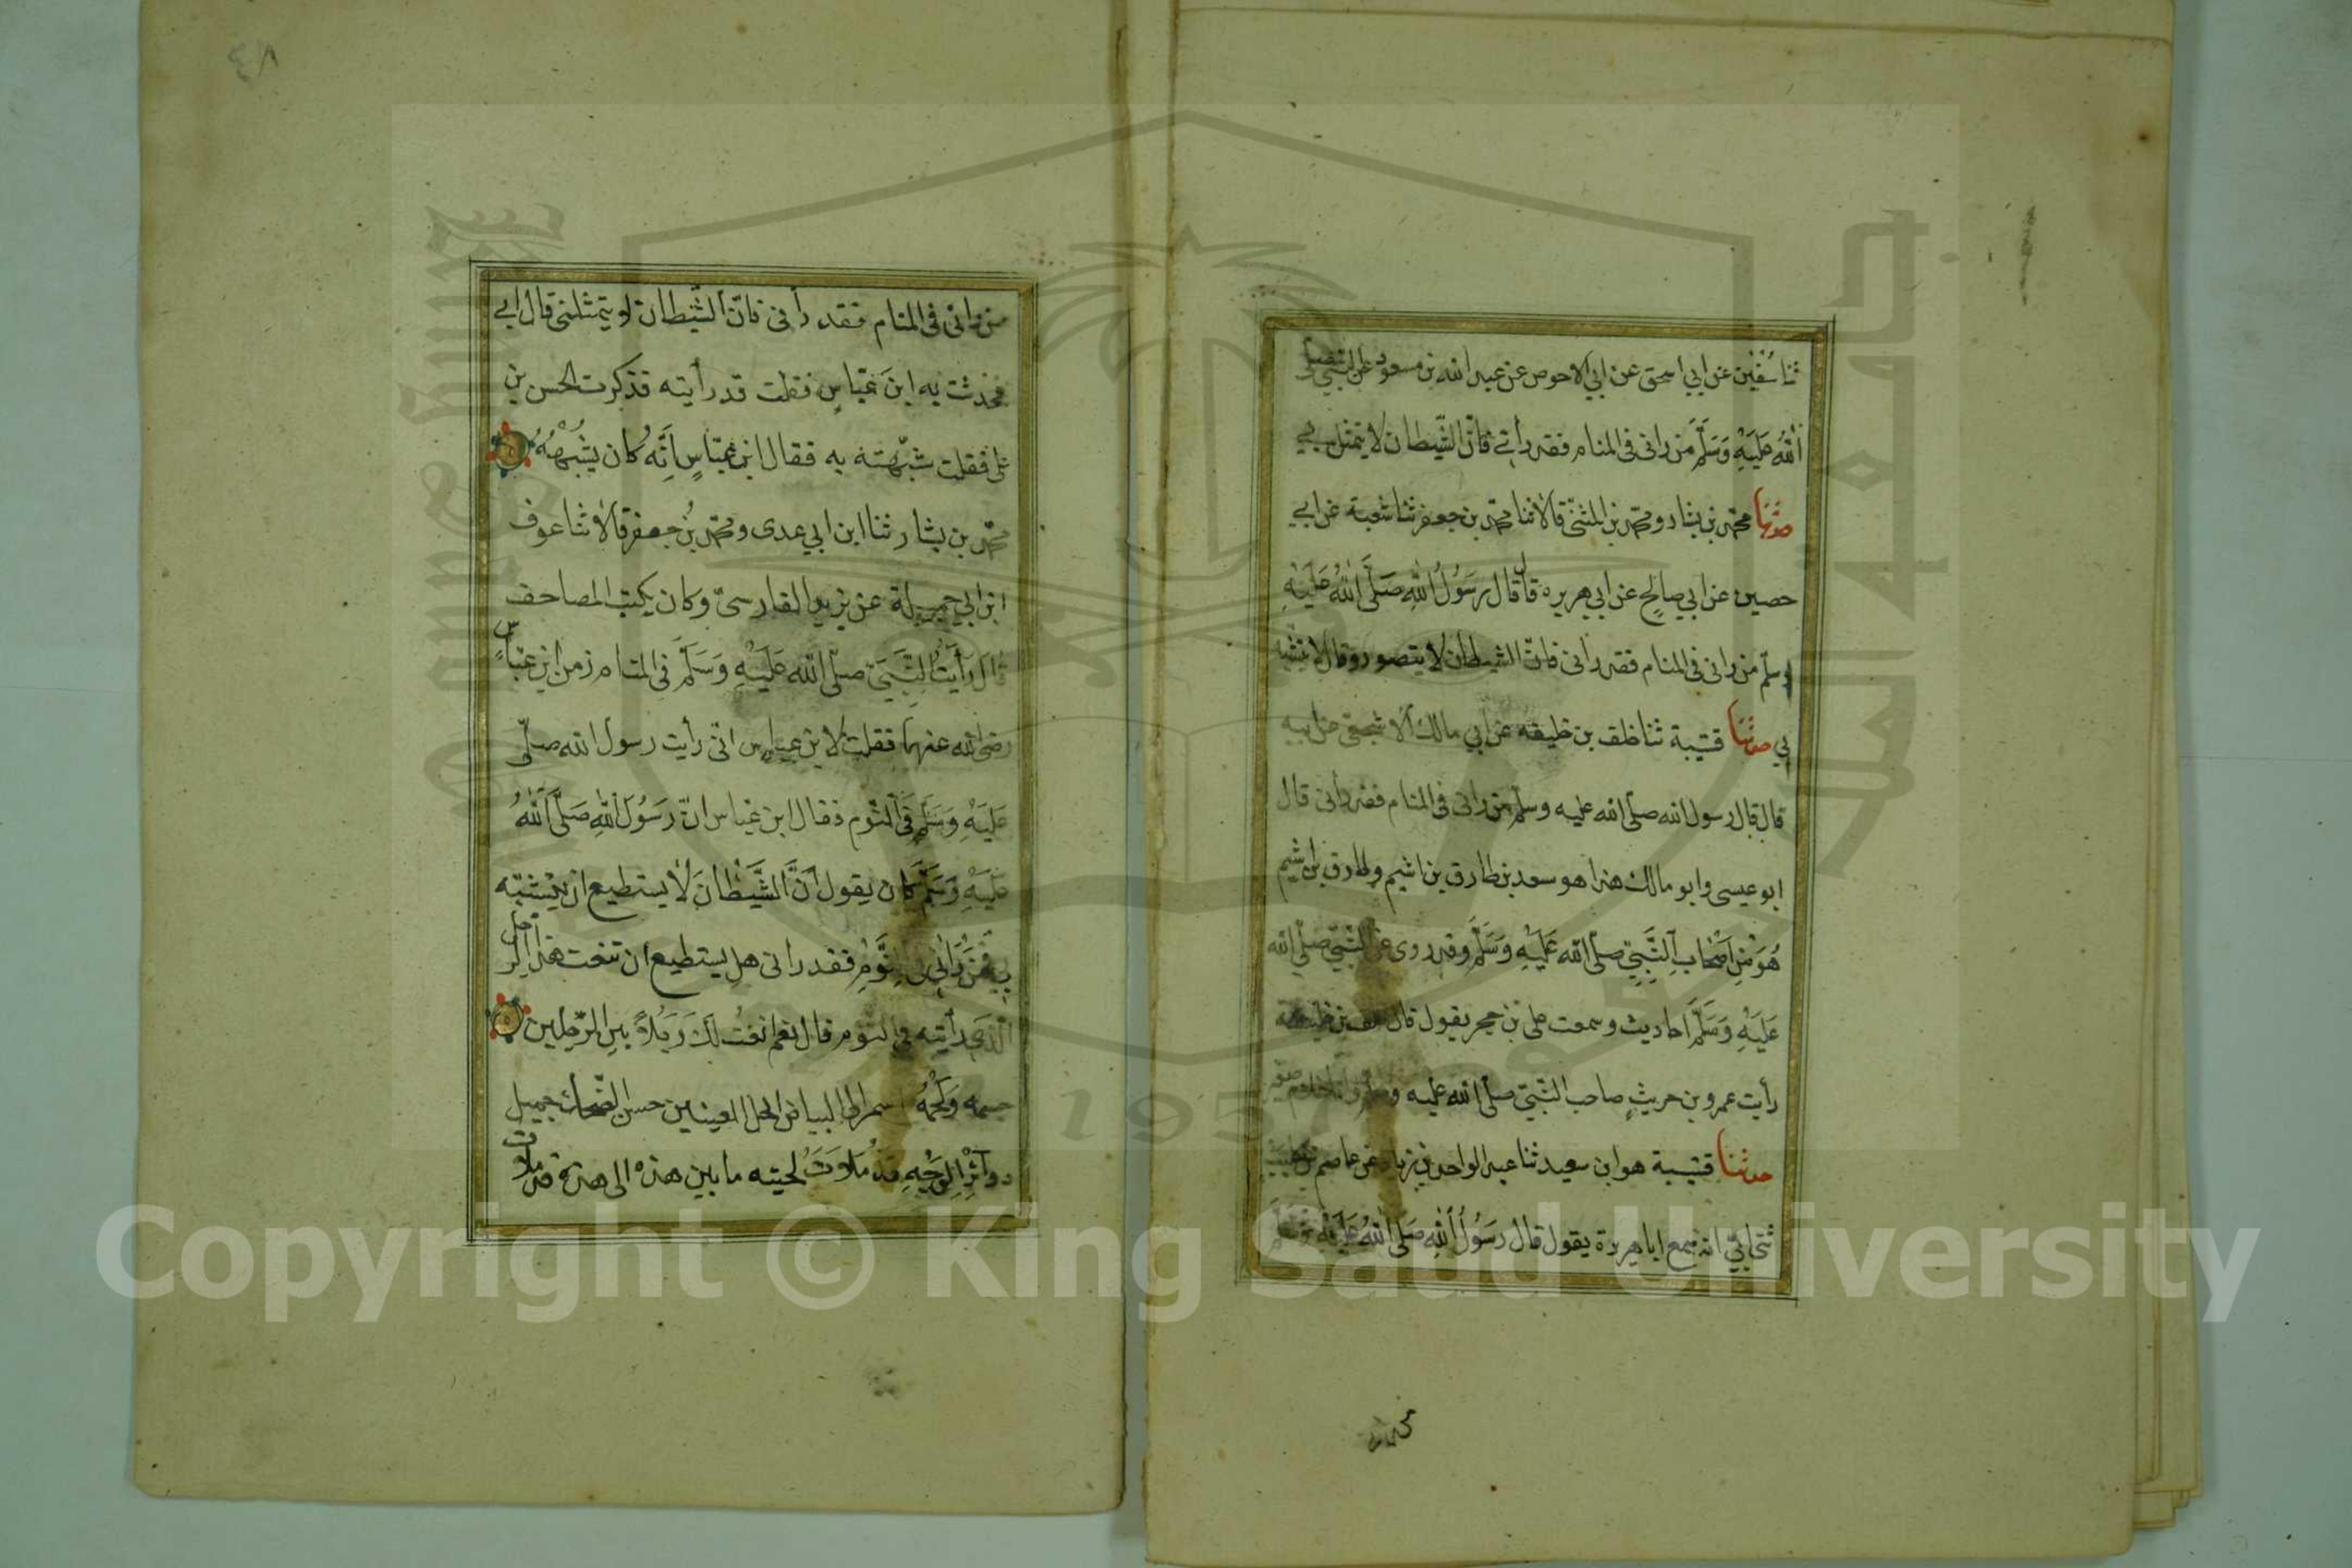 ثنا سفين عن ابي اسحق عن ابي الاحوص عن عبد الله بن مسعود عن النبي صلى
الله عَلَيْهِ وَسَلَّمَ من رانى فى المنام فقد رأنى فانّ الشّيطان لا يتمثل بي
حدثنا محمّد بن بشار ومحمّد بن المثنّى قالا ثنا محمّد بن جعفر ثنا شعبة عن ابي
حصين عن ابي صالح عن ابي هريره قال قال رَسُولُ اللهِ صَلَّى اللهُ عَلَيْهِ
وسلّم من رانى فى المنام فقد رانى فانّ الشيطان لا يتصور وقال لا يتشبه
بي حدثنا قتيبة ثنا خلف بن خليفه عن ابي مالك الاشجعى عن ابيه
قال قال رسول الله صلّى الله عليه وسلّم من رانى فى المنام فقد رأنى قال
ابو عيسى وابو مالك هذا هو سعد بن طارق بن اشيم وطارق بن اشيم
هُوَ مِنْ اَصْحَابِ النَّبِيّ صلّى الله عَلَيْهِ وَسَلَّمَ وقد روى عن النّبيّ صلّى الله
عَلَيْهِ وَسَلَّمَ احاديث وسمعت على بن حجر يقول قال خلف بن خليفة
رأيت عمرو بن حريثٍ صاحب النّبيّ صلّى الله عليه وسلّم وانا غلام صغير
حدثنا قتيبة هو ابن سعيد ثنا عبد الواحد بن زياد عن عاصم بن كليب
ثنى ابيّ انه سمع ابا هريرة يقول قال رسُولُ اللهِ صَلّى اللهُ عَلَيْهِ وَسَلَّمَ
٤٨
من رانى فى المنام فقد رأنى فانّ الشّيطان لا يتمثلنى قال ابي
فحدثت به ابن عبّاسٍ فقلت قد رأيته فذكرت الحسن بن
على فقلت شبّهته به فقال ابن عبّاسٍ اِنَّه كان يشبهُهُ
محمّد بن بشار ثنا ابن ابي عدى ومحمّد بنُ جعفر قالا ثنا عوف
ابن ابي جميلة عن يزيد الفارسىّ وكان يكتب المصاحف
قال رأيتُ النَّبِيَّ صلّى الله عَلَيْهِ وَسَلَّمَ فى المنام زمن ابن عبّاسٍ
رضى الله عنهما فقلت لابن عباس انّى رأيت رسول الله صلّى
عَلَيْهِ وَسَلَّم فى النّوم فقال ابن عباس انّ رَسُولَ اللهِ صَلَّى اللهُ
عَلَيْهِ وَسَلَّمَ كان يقول اَنَّ الشَّيْطَانَ لَا يستطيع ان يتشبّه
بي فَمَنْ رَانِى فى النَّوْمِ فقد رانى هل يستطيع ان تنعت هذا الرجل
الّذى رأيته فى النّوم قال نعم انعتُ لك رَجُلاً بين الرّجلين
جسمه ولَحْمُهُ اسمر الى البياض اكحل العينين حسن الضّحك جميل
دوائِرِ الوَجْهِ قد مَلأَتْ لحيته ما بين هذه الى هذه قد ملأت
Copyright © King Saud University
1957